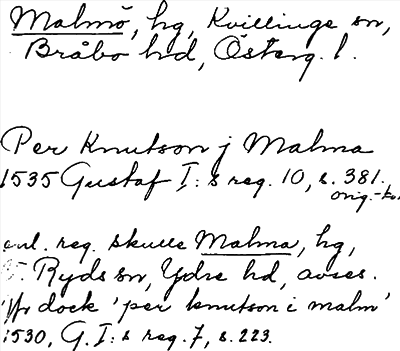 Malmö, hg, Kvillinge sn,
Bråbo hd, Österg. l.
Per Knutson j Malma
1535 Gustaf I:s reg. 10, s. 381.
orig.-ko.
enl. reg. skulle Malma, hg,
Ryds sn, Ydre hd, avses.
Jfr dock 'per knutson i malm'
1530, G. I:s reg. 7, s. 223.